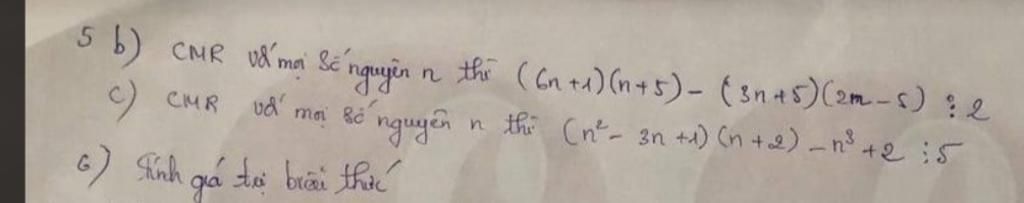 5 b) CMR với mọi số nguyên n thì (6n+1)(n+5) - (3n+5)(2m-5) ⋮ 2
c) CMR với mọi số nguyên n thì (n² - 3n +1) (n+2) - n³ +2 ⋮ 5
6) Tính giá trị biểu thức